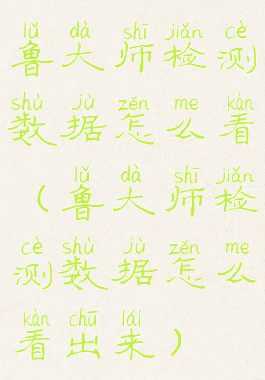 lǔ dà shī jiǎn cè
鲁大师检测
shù jù zěn me kàn
数据怎么看
lǔ dà shī jiǎn
（鲁大师检
cè shù jù zěn me
测数据怎么
kàn chū lái
看出来）